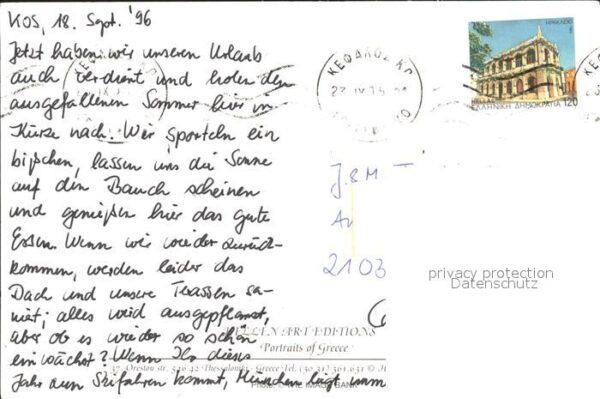 KOS, 18. Sept. '96
Jetzt haben wir unseren Urlaub
auch verdient und holen den
ausgefallenen Sommer hier in
Kürze nach. Wir sporteln ein
bißchen, lassen uns die Sonne
auf den Bauch scheinen
und genießen hier das gute
Essen. Wenn wir wieder zurück-
kommen, werden leider das
Dach und unsere Terassen sa-
niert; alles wird ausgepflanzt,
aber ob es wieder so schön
einwächst? Wenn Ihr dieses
Jahr zum Skifahren kommt, München liegt imm
ΗΡΑΚΛΕΙΟ
ΕΛΛΗΝΙΚΗ ΔΗΜΟΚΡΑΤΙΑ 120
J. & M
2103
privacy protection
Datenschutz
ART EDITIONS
Portraits of Greece
37, Orestou str. 546 42 Thessaloniki - Greece Tel. (30 31)
IMAGE BANK